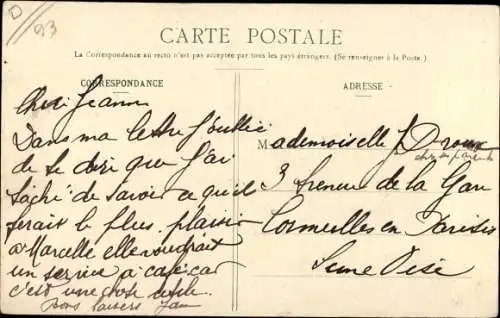 D
93
CARTE POSTALE
La Correspondance au recto n'est pas acceptée par tous les pays étrangers. (Se renseigner à la Poste.)
CORRESPONDANCE
Cheri Jeanne
Dans ma lettre j'oublie
de te dire que j'ai
taché de savoir ce qu'il
ferait le plus plaisir
a Marcelle elle voudrait
un service a café car
c'est une chose utile
bons baisers
ADRESSE
Mademoiselle J Droux
3 Avenue de la Gare
Cormeilles en Parisis
Seine Oise